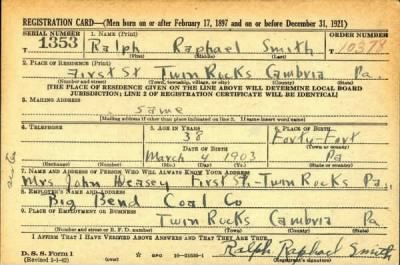 REGISTRATION CARD—(Men born on or after February 17, 1897 and on or before December 31, 1921)
SERIAL NUMBER 1. NAME (Print) ORDER NUMBER
1353 Ralph Raphael Smith 10378
(First) (Middle) (Last)
2. PLACE OF RESIDENCE (Print)
First St Twin Rocks Cambria Pa.
(Number and street) (Town, township, village, or city) (County) (State)
[THE PLACE OF RESIDENCE GIVEN ON THE LINE ABOVE WILL DETERMINE LOCAL BOARD
JURISDICTION; LINE 2 OF REGISTRATION CERTIFICATE WILL BE IDENTICAL]
3. MAILING ADDRESS
same
(Mailing address if other than place indicated on line 2. If same insert word same)
4. TELEPHONE 5. AGE IN YEARS 6. PLACE OF BIRTH
38 Forty-Fort
DATE OF BIRTH (Town or county)
March 4 1903 Pa
(Exchange) (Number) (Mo.) (Day) (Yr.) (State or country)
7. NAME AND ADDRESS OF PERSON WHO WILL ALWAYS KNOW YOUR ADDRESS
Mrs John Veasey First St.-Twin Rocks Pa.
8. EMPLOYER'S NAME AND ADDRESS
Big Bend Coal Co
9. PLACE OF EMPLOYMENT OR BUSINESS
Twin Rocks Cambria Pa
(Number and street or R. F. D. number) (Town) (County) (State)
I AFFIRM THAT I HAVE VERIFIED ABOVE ANSWERS AND THAT THEY ARE TRUE.
D. S. S. Form 1
(Revised 1-1-42) GPO Ralph Raphael Smith
(Registrant's signature)